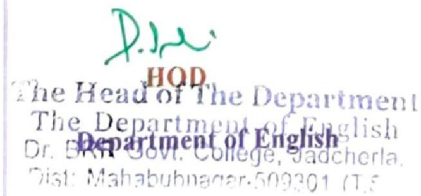 HOD
The Head of The Department
The Department of English
Department of English
Dr. BRR Govt. College, Jadcherla.
Dist: Mahabubnagar-509301 (T.S